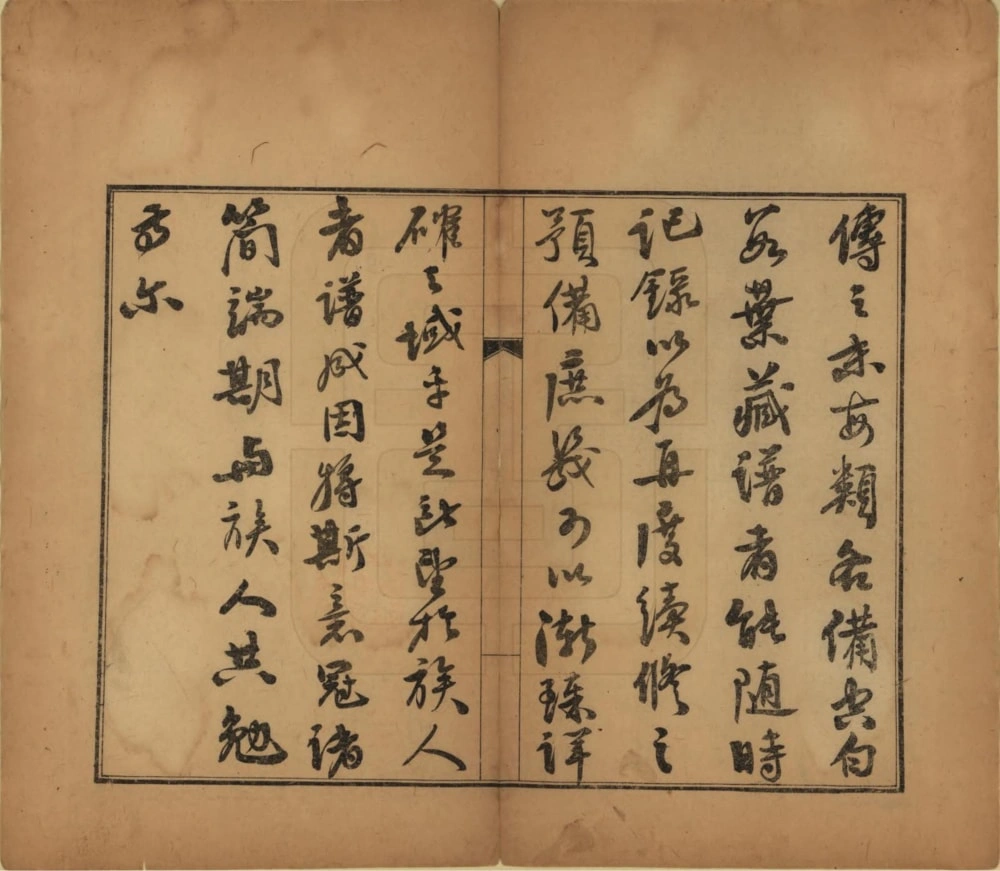 傳之末每類各備空白
若干葉藏譜者能隨時
記錄以為再度續修之
預備庶幾可以漸臻詳
確之域乎是所望於族人
者譜成因將斯意冠諸
簡端期與族人共勉
焉爾